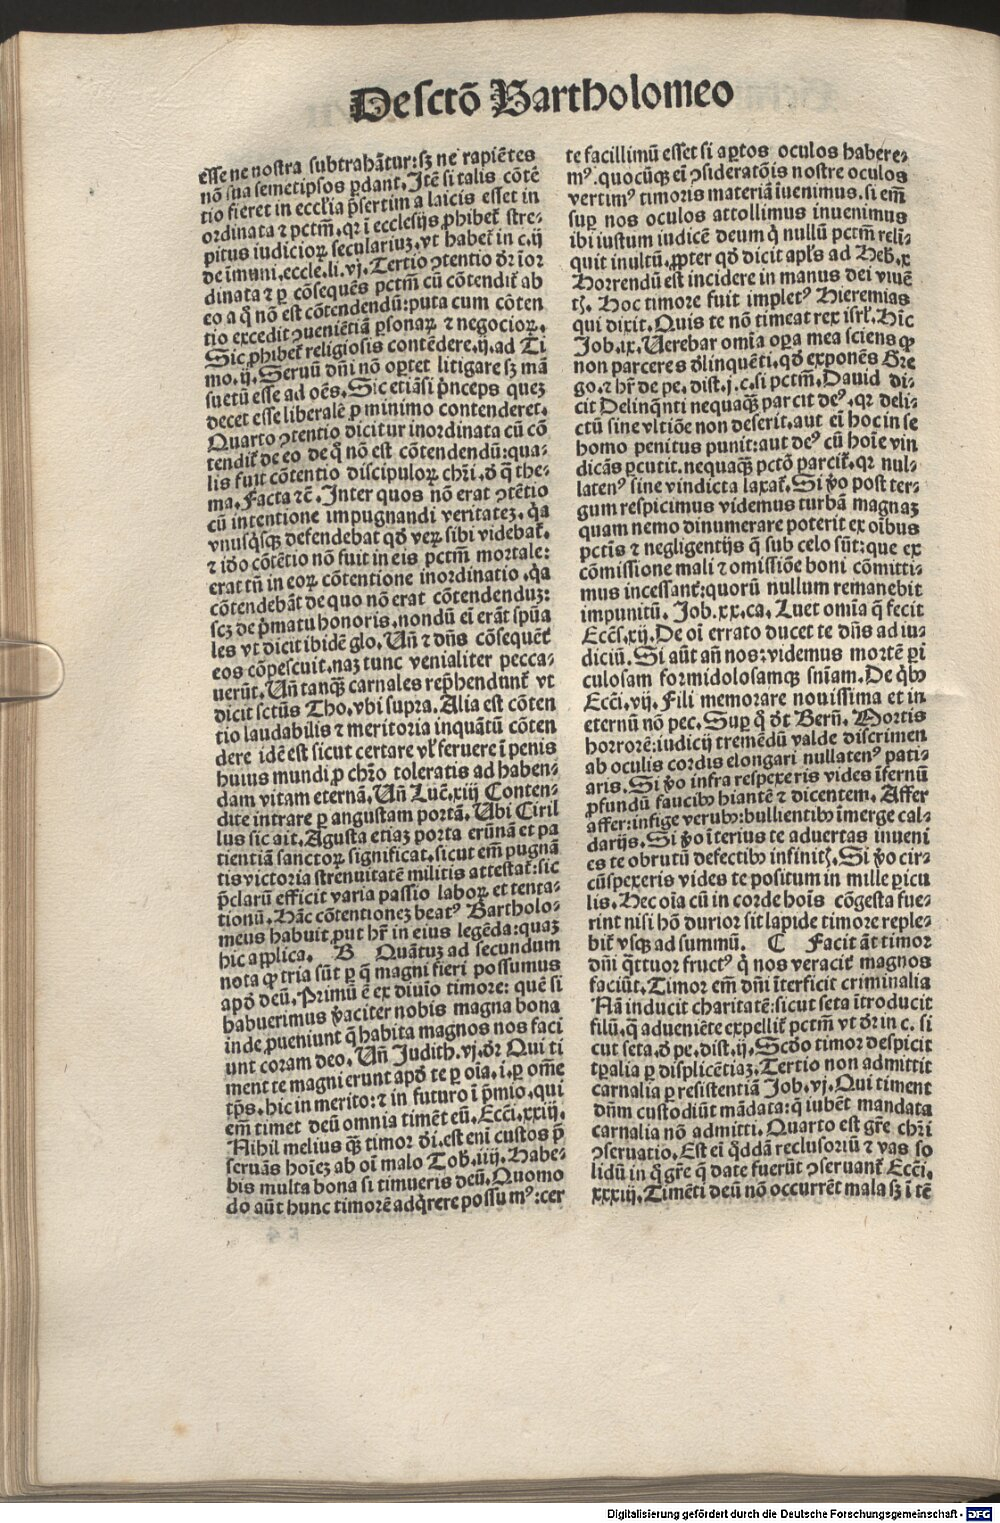 De sctō Bartholomeo
esse ne nostra subtrahāt̄ur: sꝫ ne rapiētes
nō sua semetipsos ꝑdant. Itē si talis cōtē
tio fieret in ecclīa p̄sertim a laicis esset in
ordinata ⁊ pctm̄. qꝛ ī ecclesijs ꝓhibet̄ stre-
pitus iudicioꝝ seculariuꝫ. vt habet̄ in c. ij
de īmuni. eccle. li. vj. Tertio ꝯtentio dr̄ īor
dinata ⁊ ꝑ cōsequēs pctm̄ cū cōtendit̄ ab
eo a q̄ nō est cōtendendū: puta cum cōten
tio excedit ꝯueniētiā ꝑsonaꝝ ⁊ negocioꝝ.
Sic ꝓhibet̄ religiosis contēdere. ij. ad Ti
mo. ij. Seruū dn̄i nō oꝑtet litigare sꝫ mā
suetū esse ad oēs. Sic etiāsi p̄nceps queꝫ
decet esse liberalē ꝓ minimo contenderet.
Quarto ꝯtentio dicitur inordinata cū cō
tendit̄ de eo de q̄ nō est cōtendendū: qua-
lis fuit cōtentio discipuloꝝ chr̄i. d̄ q̄ the-
ma. Facta ⁊c̄. Inter quos nō erat ꝯtētio
cū intentione impugnandi veritateꝫ. q̄a
vnusq̄sqꝫ defendebat qd̄ veꝝ sibi videbat̄.
⁊ id̄o cōtētio nō fuit in eis pctm̄ mortale:
erat tn̄ in eoꝝ cōtentione inordinatio. q̄a
cōtendebāt de quo nō erat cōtendenduꝫ:
scꝫ de p̄matu honoris. nondū eī erāt spūa
les vt dicit ibidē glo. Vn̄ ⁊ dn̄s cōsequēt̄
eos cōpescuit. naꝫ tunc venialiter pecca-
uerūt. Vn̄ tanqꝫ̄ carnales rep̄hendunt̄ vt
dicit sctūs Tho. vbi supra. Alia est cōten
tio laudabilis ⁊ meritoria inquātū cōten
dere idē est sicut certare vl̄ feruere ī penis
huius mundi ꝓ chr̄o toleratis ad haben-
dam vitam eternā. Vn̄ Luc̄. xiij Conten-
dite intrare ꝑ angustam portā. Ubi Ciril
lus sic ait. Agusta etiaꝫ porta erūnā et pa
tientiā sanctoꝝ significat. sicut em̄ pugnā
tis victoria strenuitatē militis attestat̄: sic
p̄clarū efficit varia passio laboꝝ et tenta-
tionū. Hāc cōtentioneꝫ beatꝰ Bartholo-
meus habuit ꝓut hr̄ in eius legēda: quaꝫ
hic applica. B Quātuꝫ ad secundum
nota qꝙ tria sūt ꝑ q̄ magni fieri possumus
apd̄ deū. Primū ē ex diuīo timore: quē si
habuerimus v̄aciter nobis magna bona
inde ꝓueniunt q̄ habita magnos nos faci
unt coram deo. Vn̄ Judith. vj. dr̄ Qui ti
ment te magni erunt apd̄ te ꝑ oīa. i. ꝑ om̄e
tp̄s. hic in merito: ⁊ in futuro ī p̄mio. qui
em̄ timet deū omnia timēt eū. Ecc̄i. xxiij.
Nihil melius qꝫ̄ timor d̄i. est eni custos p̄
seruās hoīeꝫ ab oī malo Tob̄. iiij. Habe-
bis multa bona si timueris deū. Quomo
do aūt hunc timorē adq̄rere possumꝰ: cer
te facillimū esset si aꝑtos oculos habere-
mꝰ. quocūqꝫ eī ꝯsideratōis nostre oculos
vertimꝰ timoris materiā īuenimus. si em̄
suꝑ nos oculos attollimus inuenimus
ibi iustum iudicē deum q̄ nullū pctm̄ reli̅-
quit inultū. ꝓpter qd̄ dicit apl̄s ad Heb̄. x
Horrendū est incidere in manus dei viuē
tꝭ. Hoc timore fuit impletꝰ Hieremias
qui dixit. Quis te nō timeat rex isrl̄. Hīc
Job. ix. Uerebar omīa oꝑa mea sciens qꝙ
non parceres d̄linquēti. qd̄ exponēs Gre
go. ⁊ hr̄ de pe. dist. j. c. si pctm̄. David di-
cit Delinq̄nti nequaqꝫ̄ parcit deꝰ. qꝛ deli-
ctū sine vltiōe non deserit. aut eī hoc in se
homo penitus punit: aut deꝰ cū hoīe vin
dicās ꝑcutit. nequaqꝫ̄ pctō parcit̄. qꝛ nul-
latenꝰ sine vindicta laxat̄. Si v̄o post ter-
gum respicimus videmus turbā magnaꝫ
quam nemo dinumerare poterit ex oībus
pctīs ⁊ negligentijs q̄ sub celo sūt: que ex
cōmissione mali ⁊ omissiōe boni cōmitti-
mus incessant̄: quorū nullum remanebit
impunitū. Job. xx. ca. Luet omīa q̄ fecit
Ecc̄s. xij. De oī errato ducet te dn̄s ad iu-
diciū. Si aūt an̄ nos: videmus mortē ꝑi
culosam formidolosamqꝫ sn̄iam. De q̄bꝰ
Ecc̄i. vij. Fili memorare nouissima et in
eternū nō pec. Suꝑ q̄ d̄t Bern̄. Mortis
horrorē: iudicij tremēdū valde discrimen
ab oculis cordis elongari nullatenꝰ pati-
aris. Si v̄o infra respexeris vides īfernū
ꝓfundū faucibꝰ hiantē ⁊ dicentem. Affer
affer: infige verubꝰ: bullientibꝰ īmerge cal-
darijs. Si v̄o īterius te aduertas inueni
es te obrutū defectibꝰ infinitꝭ. Si v̄o cir-
cūspexeris vides te positum in mille ꝑicu
lis. Hec oīa cū in corde hoīs cōgesta fue-
rint nisi hō durior sit lapide timore reple-
bit̄ vsqꝫ ad summū. C Facit āt timor
dn̄i q̄ttuor fructꝰ q̄ nos veracit̄ magnos
faciūt. Timor em̄ dn̄i īterficit criminalia
Nā inducit charitatē: sicut seta ītroducit
filū. q̄ adueniēte expellit̄ pctm̄ vt dr̄ in c. si
cut seta. d̄ pe. dist. ij. Scd̄o timor despicit
tp̄alia ꝑ displicētiaꝫ. Tertio non admittit
carnalia ꝑ resistentiā Job. vj. Qui timent
dn̄m custodiūt mādata: q̄ iubēt mandata
carnalia nō admitti. Quarto est gr̄e chr̄i
ꝯseruatio. Est eī q̄ddā reclusoriū ⁊ vas so
lidū in q̄ gr̄e q̄ date fuerūt ꝯseruant̄ Ecc̄i.
xxxiij. Timēti deū nō occurrēt mala sꝫ ī tē
Digitalisierung gefördert durch die Deutsche Forschungsgemeinschaft - DFG